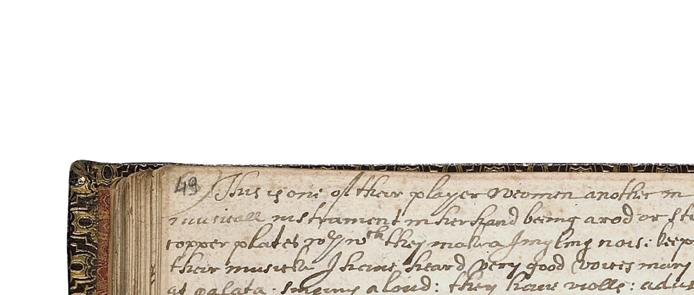 49 This is one of their player woemen another m
musicall instrament in her hand being a rod or st
copper plates they make a Jingling nois: keep
their musicke I haue heard very good voices many
at galata: singing aloud: they haue violls: a